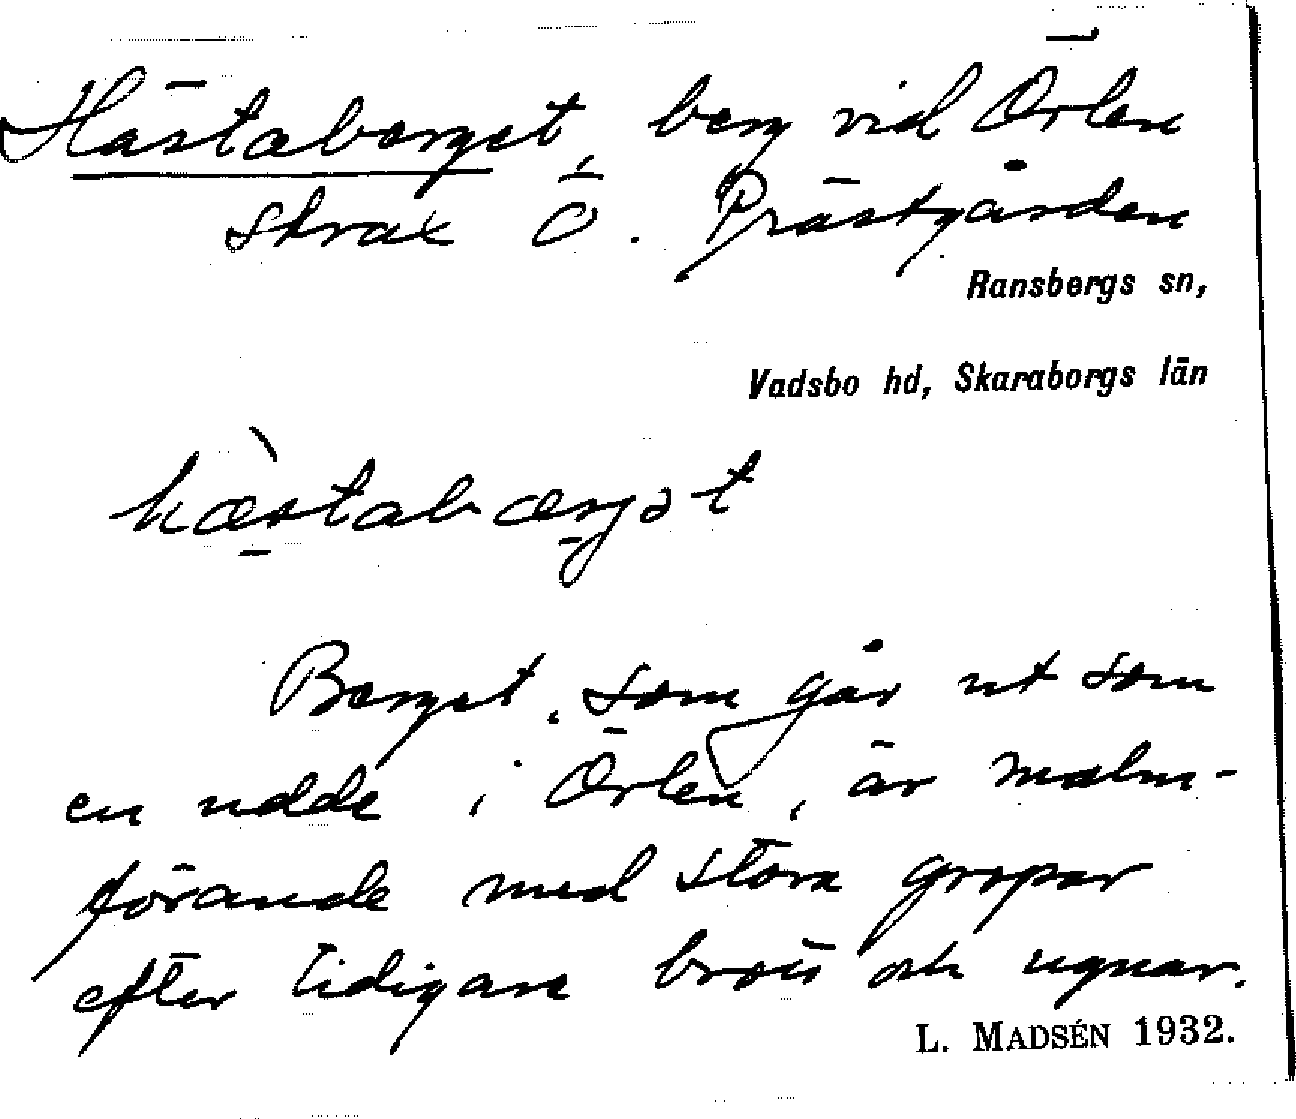 Hästaberget, berg vid Örlen
strax Ö. Prästgården
Ransbergs sn,
Vadsbo hd, Skaraborgs län
hæ̀stabærjət
Berget, som går ut som
en udde i Örlen, är malm-
förande med stora gropar
efter tidigare brott och ugnar.
L. MADSÉN 1932.